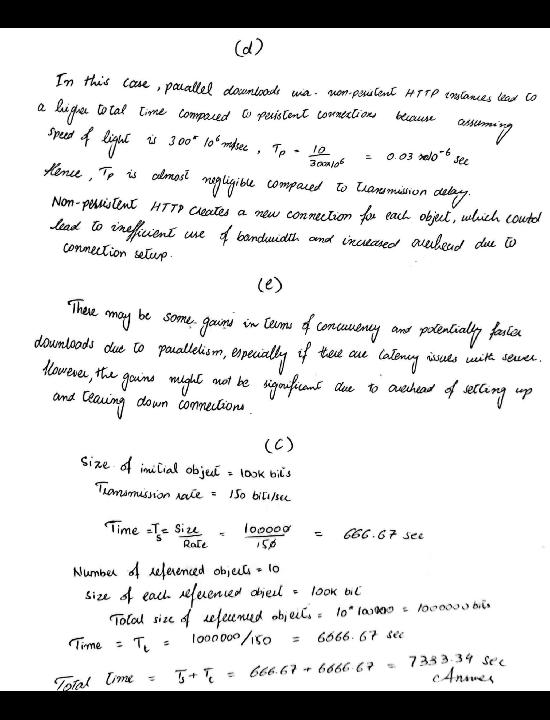 (d)
In this case, parallel downloads via. non-persistent HTTP instances lead to
a higher total time compared to persistent connections because assuming
speed of light is 300* 10^6 m/sec, Tp = 10/300x10^6 = 0.03 x10^-6 sec
Hence, Tp is almost negligible compared to transmission delay.
Non-persistent HTTP creates a new connection for each object, which could
lead to inefficient use of bandwidth and increased overhead due to
connection setup.
(e)
There may be some gains in terms of concurrency and potentially faster
downloads due to parallelism, especially if there are latency issues with server.
However, the gains might not be significant due to overhead of setting up
and tearing down connections.
(C)
Size of initial object = 100K bits
Transmission rate = 150 bits/sec
Time = Ts = Size/Rate = 100000/150 = 666.67 sec
Number of referenced objects = 10
Size of each referenced object = 100K bit
Total size of referenced objects = 10* 100000 = 1000000 bits
Time = Tt = 1000000/150 = 6666.67 sec
Total time = Ts + Tt = 666.67 + 6666.67 = 7333.34 sec
Answer